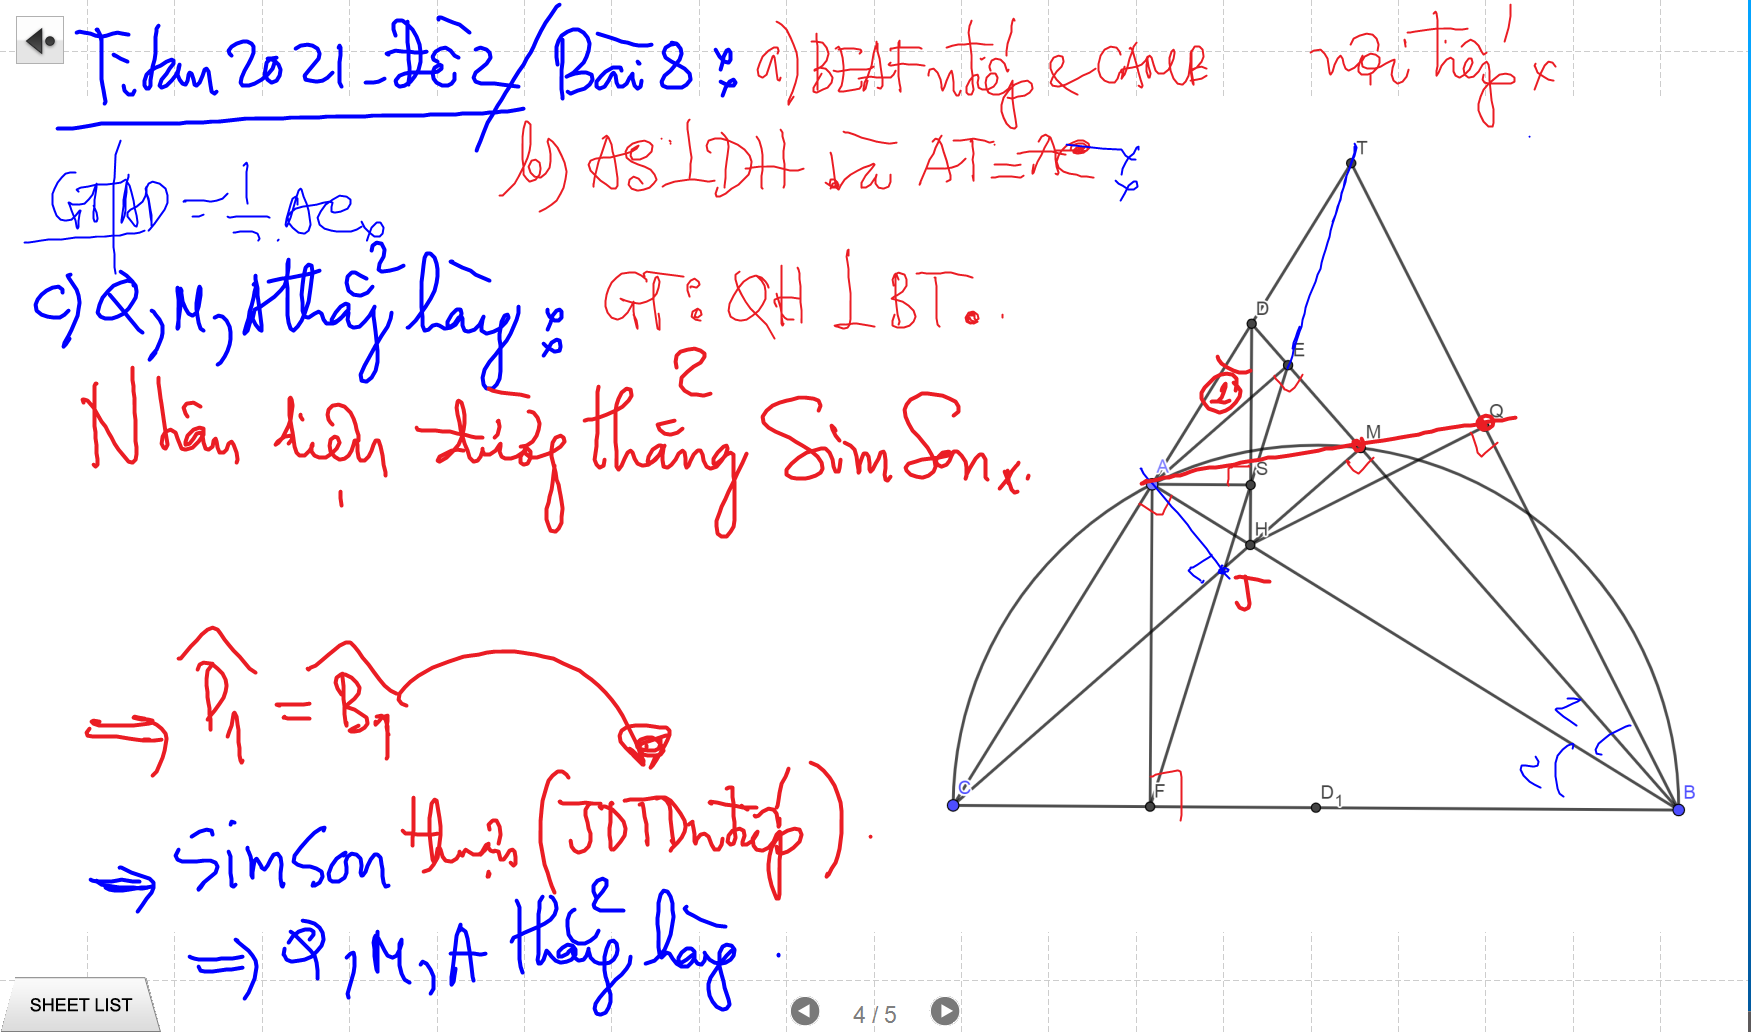 T.tâm 2021 - Đề 2 / Bài 8:
a) BEAF ntiếp & CAMB nội tiếp
b) AS ⊥ DH và AT =
GT AD = 1/2 AC
c) Q, M, A thẳng hàng:
GT: QH ⊥ BT.
Nhận diện đường thẳng SimSon
⇒ D1 = B1
⇒ SimSon thuận ( ntiếp).
⇒ Q, M, A thẳng hàng.
T
D
E
1
Q
M
A
S
H
J
1
2
C
F
D1
B
SHEET LIST
4 / 5